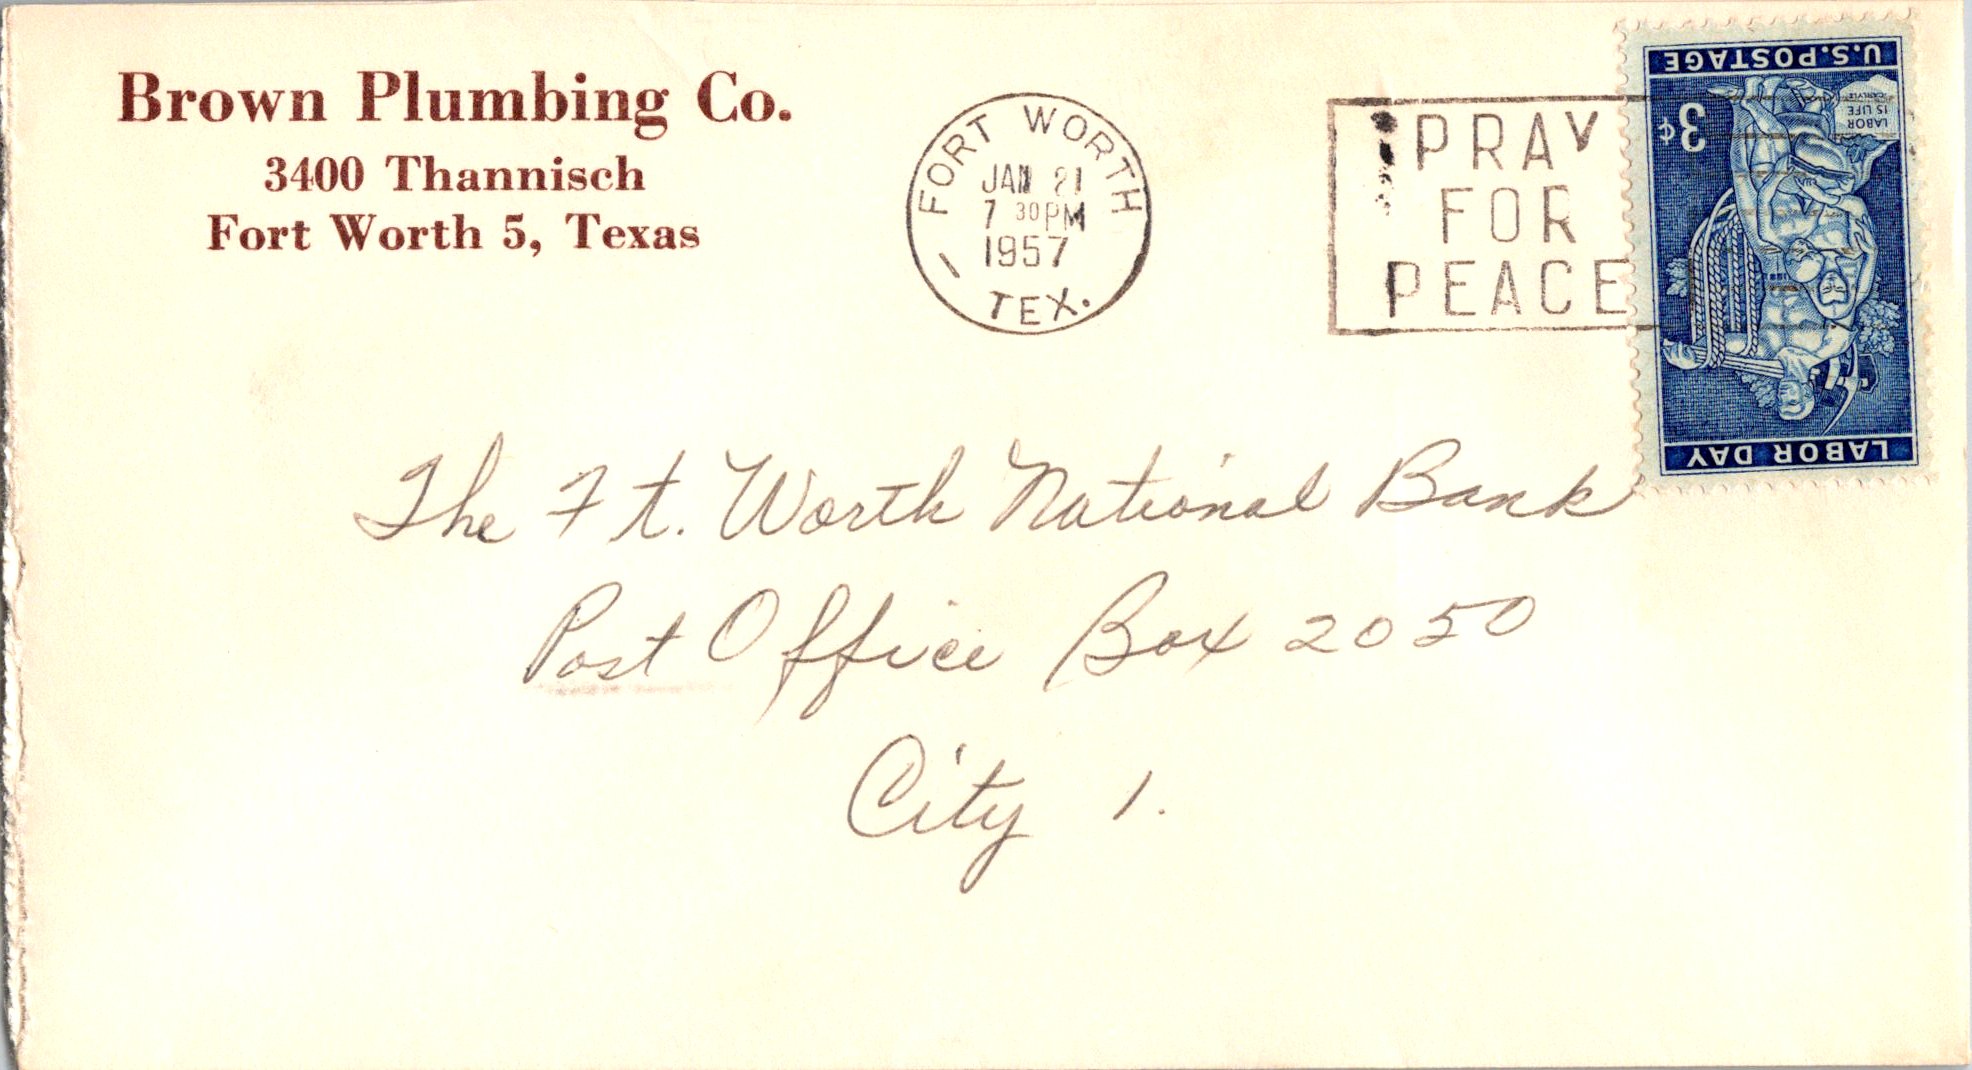 Brown Plumbing Co.
3400 Thannisch
Fort Worth 5, Texas
FORT WORTH
JAN 21
7 30 PM
1957
1
TEX.
PRAY
FOR
PEACE
U.S. POSTAGE
LABOR
IS LIFE
CARLYLE
3¢
LABOR DAY
The Ft. Worth National Bank
Post Office Box 2050
City 1.